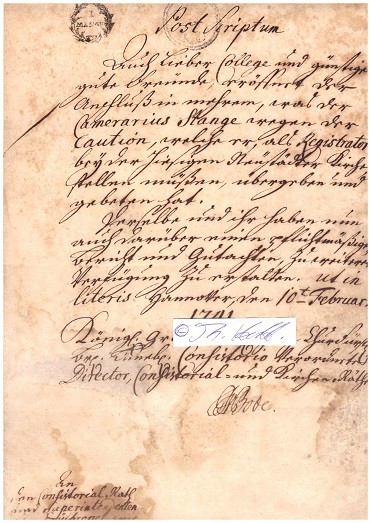 Post Scriptum
Auch Lieber College und günstige
gute Freunde, eröffnet der
Anschluß in mehrem, was der
Camerarius Stange wegen der
Caution, welche er, als Registrator
bey der hiesigen Neustädter Kirche
stellen müßen, übergeben und
gebeten hat.
Derselbe und ihr haben nun
auch darüber einen pflichtmäßigen
Bericht und Gutachten, zu weiterer
Verfügung zu erstatten. ut in
literis Hannover, den 10t. Februar.
1791
Königl. Gr. Churfürstl.
Consistorio Verordnete
Director, Consistorial- und Kirchen Räthe
An
den Consistorial Rath
und Superintendenten